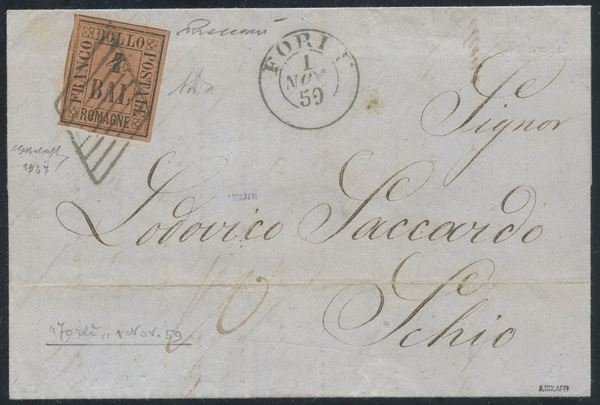 FRANCO BOLLO POSTALE
4
BAI.
ROMAGNE
FORLI
1
NOV
59
Signor
1957
A.BOLAFFI
Lodovico Saccardo
Schio
"Forlì" 1 Nov. 59
A.BOLAFFI